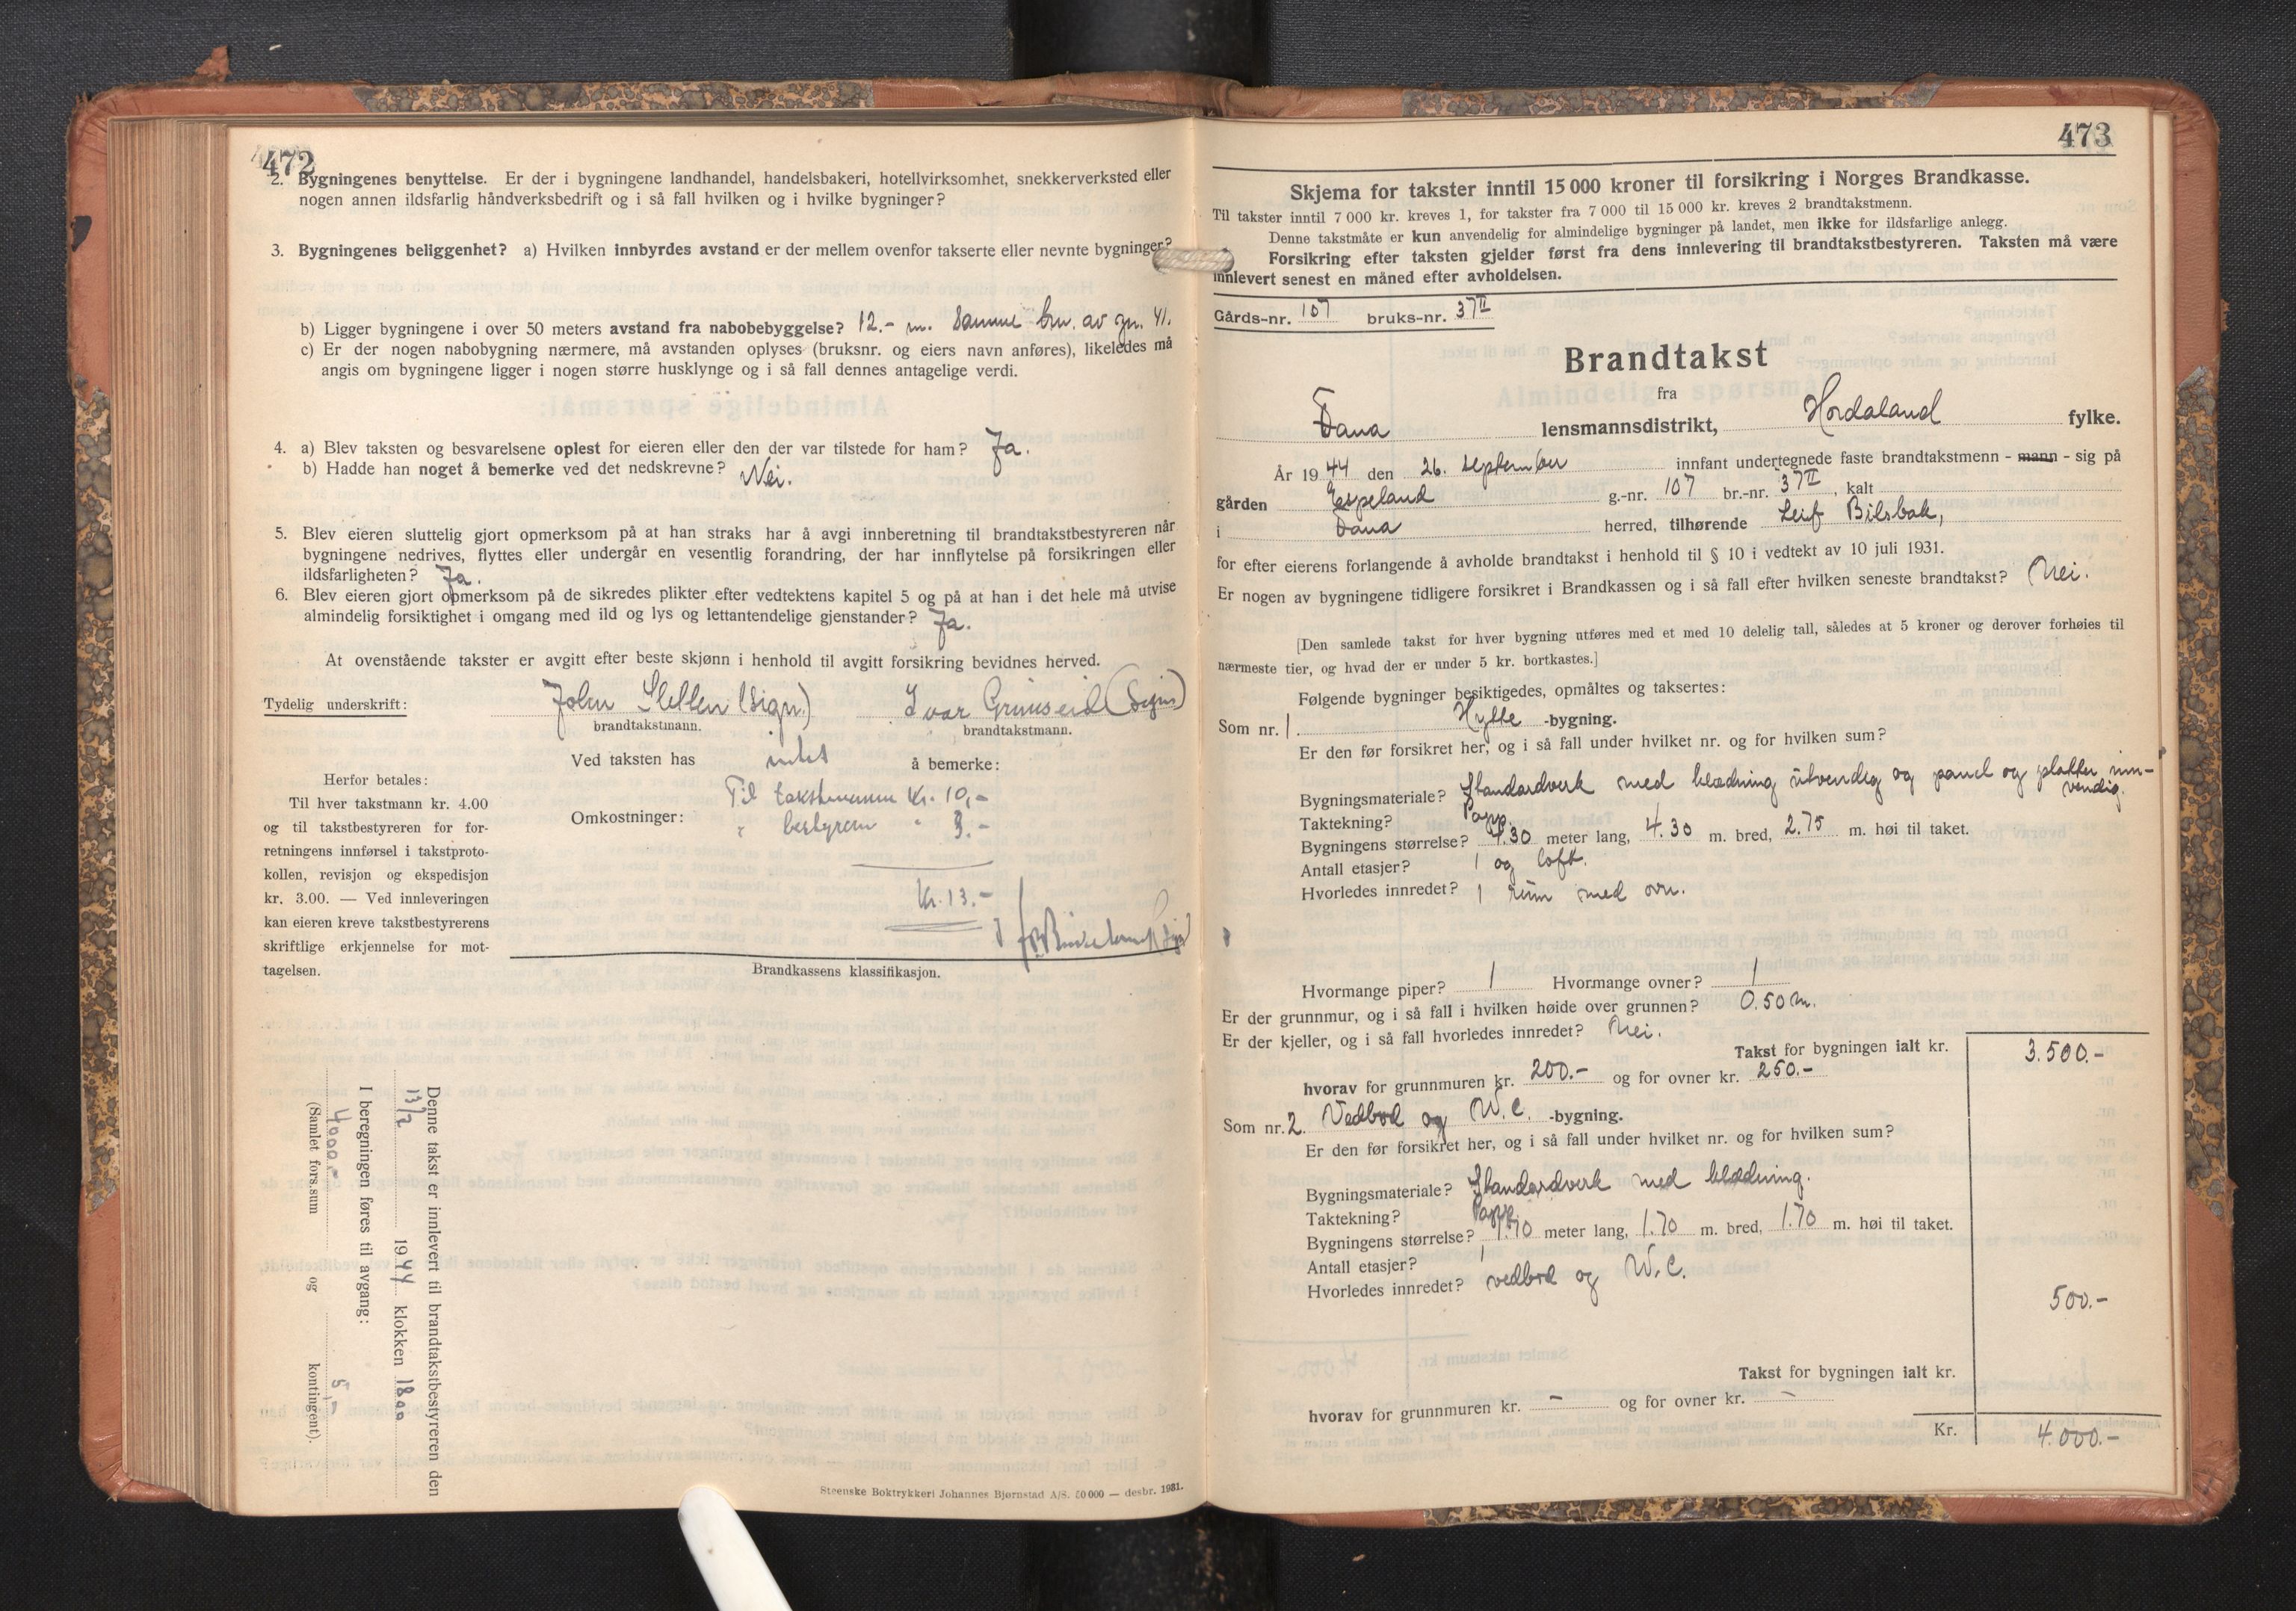 472
2. Bygningenes benyttelse. Er der i bygningene landhandel, handelsbakeri, hotellvirksomhet, snekkerverksted eller
nogen annen ildsfarlig håndverksbedrift og i så fall hvilken og i hvilke bygninger?
3. Bygningenes beliggenhet? a) Hvilken innbyrdes avstand er der mellem ovenfor takserte eller nevnte bygninger?
b) Ligger bygningene i over 50 meters avstand fra nabobebyggelse? 12.- m. Samme bnr. av gn. 41.
c) Er der nogen nabobygning nærmere, må avstanden oplyses (bruksnr. og eiers navn anføres), likeledes må
angis om bygningene ligger i nogen større husklynge og i så fall dennes antagelige verdi.
4. a) Blev taksten og besvarelsene oplest for eieren eller den der var tilstede for ham? Ja.
b) Hadde han noget å bemerke ved det nedskrevne? Nei.
5. Blev eieren sluttelig gjort opmerksom på at han straks har å avgi innberetning til brandtakstbestyreren når
bygningene nedrives, flyttes eller undergår en vesentlig forandring, der har innflytelse på forsikringen eller
ildsfarligheten? Ja.
6. Blev eieren gjort opmerksom på de sikredes plikter efter vedtektens kapitel 5 og på at han i det hele må utvise
almindelig forsiktighet i omgang med ild og lys og lettantendelige gjenstander? Ja.
At ovenstående takster er avgitt efter beste skjønn i henhold til avgitt forsikring bevidnes herved.
Tydelig underskrift: John Sletten (sign.) Ivar Grimseid (sign)
brandtakstmann. brandtakstmann.
Ved taksten has intet å bemerke:
Herfor betales:
Til hver takstmann kr. 4.00
og til takstbestyreren for for-
retningens innførsel i takstproto-
kollen, revisjon og ekspedisjon
kr. 3.00. — Ved innleveringen
kan eieren kreve takstbestyrerens
skriftlige erkjennelse for mot-
tagelsen.
Omkostninger: Til takstmenn Kr. 10,-
" bestyren " 3.-
Kr. 13.-
Brandkassens klassifikasjon.
Denne takst er innlevert til brandtakstbestyreren den
13/2 1944 klokken 1800
I beregningen føres til avgang:
4000.- 5,-
(Samlet fors.sum og kontingent).
Steenske Boktrykkeri Johannes Bjørnstad A/S. 50000 — desbr. 1931.
473
Skjema for takster inntil 15 000 kroner til forsikring i Norges Brandkasse.
Til takster inntil 7 000 kr. kreves 1, for takster fra 7 000 til 15 000 kr. kreves 2 brandtakstmenn.
Denne takstmåte er kun anvendelig for almindelige bygninger på landet, men ikke for ildsfarlige anlegg.
Forsikring efter taksten gjelder først fra dens innlevering til brandtakstbestyreren. Taksten må være
innlevert senest en måned efter avholdelsen.
Gårds-nr. 107 bruks-nr. 37 II
Brandtakst
fra
Fana lensmannsdistrikt, Hordaland fylke.
År 1944 den 26. september innfant undertegnede faste brandtakstmenn - mann - sig på
gården Espeland g.-nr. 107 br.-nr. 37 II, kalt
i Fana herred, tilhørende Leif Bilsbak,
for efter eierens forlangende å avholde brandtakst i henhold til § 10 i vedtekt av 10 juli 1931.
Er nogen av bygningene tidligere forsikret i Brandkassen og i så fall efter hvilken seneste brandtakst? Nei.
[Den samlede takst for hver bygning utføres med et med 10 delelig tall, således at 5 kroner og derover forhøies til
nærmeste tier, og hvad der er under 5 kr. bortkastes.]
Følgende bygninger besiktigedes, opmåltes og taksertes:
Som nr. 1. Hytte -bygning.
Er den før forsikret her, og i så fall under hvilket nr. og for hvilken sum?
Bygningsmateriale? Standardverk med klædning utvendig og panel og plakter inn-
vendig.
Taktekning? Papp.
Bygningens størrelse? 4.30 meter lang, 4.30 m. bred, 2.75 m. høi til taket.
Antall etasjer? 1 og loft.
Hvorledes innredet? 1 rum med ovn.
Hvormange piper? 1 Hvormange ovner? 1
Er der grunnmur, og i så fall i hvilken høide over grunnen? 0.50 m.
Er der kjeller, og i så fall hvorledes innredet? Nei.
Takst for bygningen ialt kr. 3.500.-
hvorav for grunnmuren kr. 200.- og for ovner kr. 250.-
Som nr. 2. Vedbod og W.C. -bygning.
Er den før forsikret her, og i så fall under hvilket nr. og for hvilken sum?
Bygningsmateriale? Standardverk med klædning.
Taktekning? Papp.
Bygningens størrelse? 1.70 meter lang, 1.70 m. bred, 1.70 m. høi til taket.
Antall etasjer? 1
Hvorledes innredet? vedbod og W.C.
500.-
Takst for bygningen ialt kr.
hvorav for grunnmuren kr. - og for ovner kr. -
Kr. 4.000.-